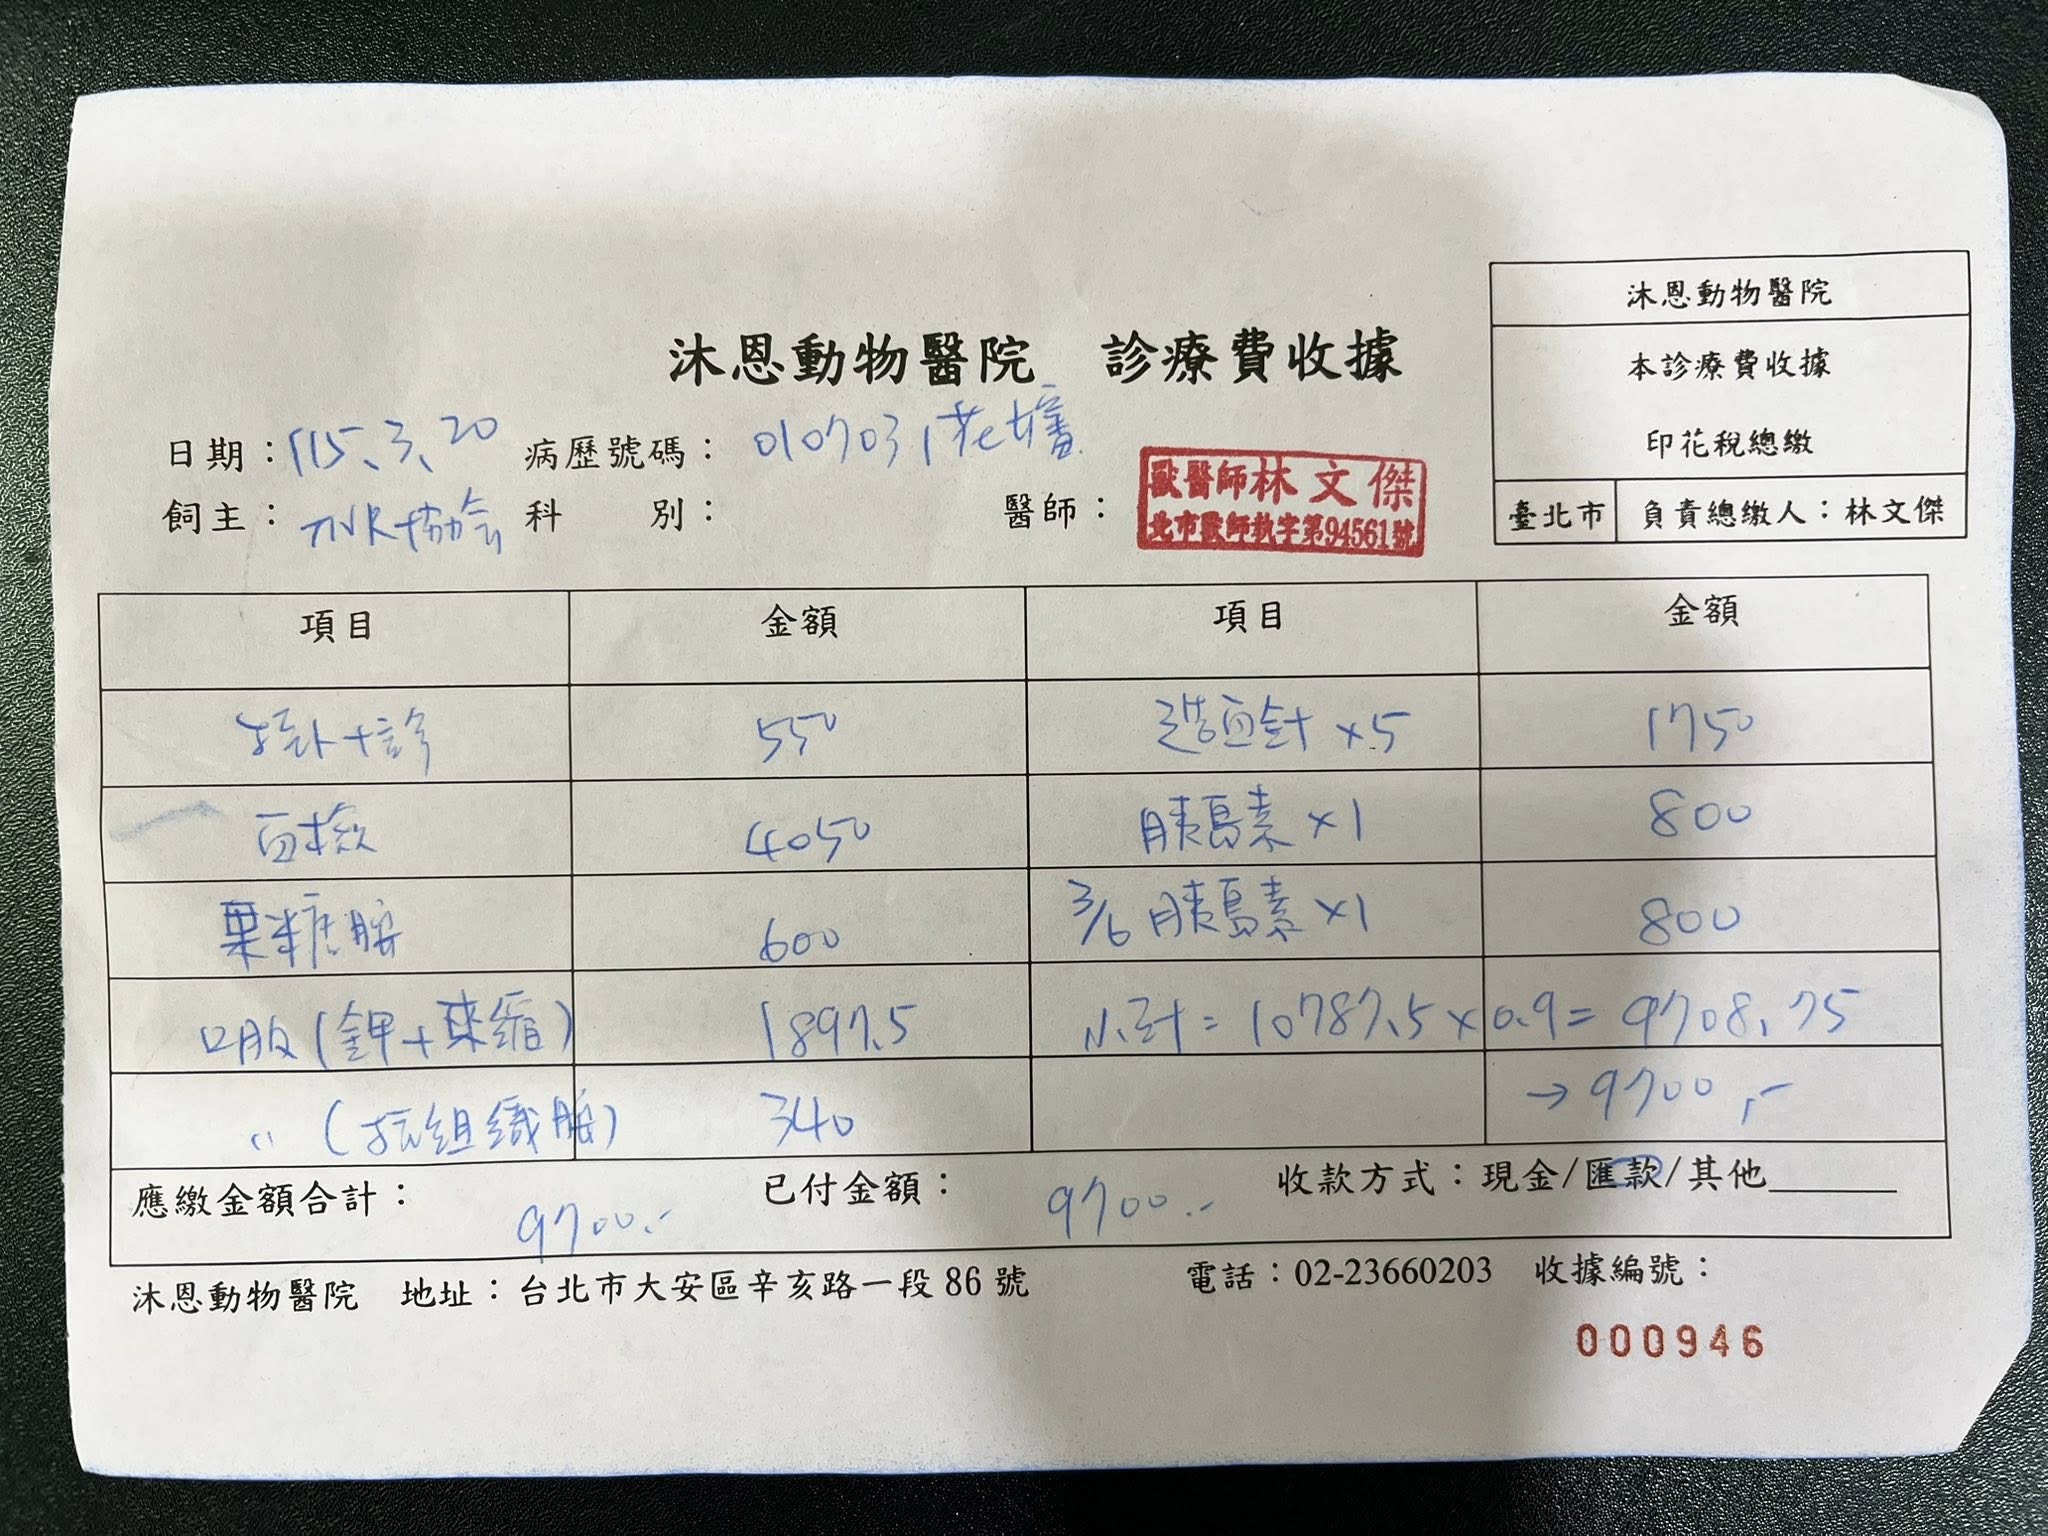 沐恩動物醫院
本診療費收據
印花稅總繳
臺北市 負責總繳人：林文傑
沐恩動物醫院 診療費收據
日期：115.3.20 病歷號碼：010703 花嬸
飼主：TNR協會 科 別： 醫師：
獸醫師林文傑
北市獸醫師執字第94561號
項目 金額 項目 金額
掛+診 550 造血針×5 1750
血檢 4050 胰島素×1 800
果糖胺 600 3/6 胰島素×1 800
口服(鉀+來縮) 1897.5 小計=10787.5×0.9=9708.75
〃(抗組織胺) 340 →9700.-
應繳金額合計：9700.- 已付金額：9700.- 收款方式：現金/匯款/其他______
沐恩動物醫院 地址：台北市大安區辛亥路一段86號 電話：02-23660203 收據編號：
000946